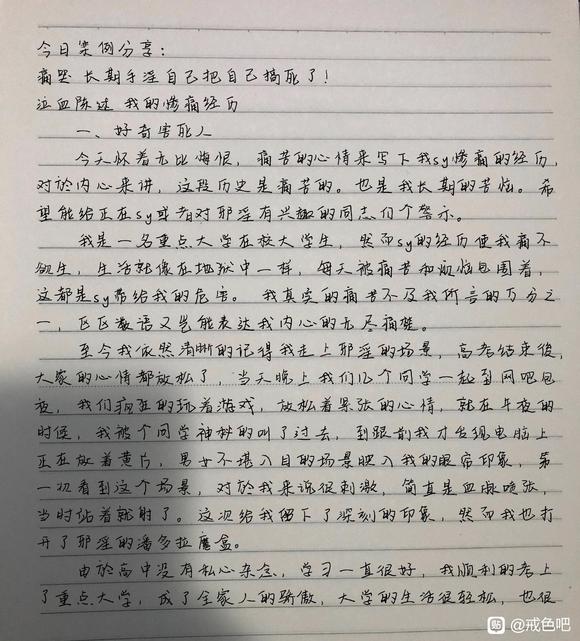 今日案例分享：
痛哭 长期手淫自己把自己搞死了！
泣血陈述 我的惨痛经历
一、好奇害死人
今天怀着无比悔恨，痛苦的心情来写下我sy惨痛的经历，
对於内心来讲，这段历史是痛苦的。也是我长期的苦恼。希
望能给正在sy或者对邪淫有兴趣的同志们个警示。
我是一名重点大学在校大学生，然而sy的经历使我痛不
欲生，生活就像在地狱中一样，每天被痛苦和烦恼包围着，
这都是sy带给我的危害。我真实的痛苦不及我所言的万分之
一，区区数语又岂能表达我内心的无尽痛楚。
至今我依然清晰的记得我走上邪淫的场景，高考结束後，
大家的心情都放松了，当天晚上我们几个同学一起到网吧包
夜，我们疯狂的玩着游戏，放松着紧张的心情，就在午夜的
时候，我被个同学神秘的叫了过去，到跟前我才发现电脑上
正在放着黄片，男女不堪入目的场景映入我的眼帘印象，第
一次看到这个场景，对於我来说很刺激，简直是血脉喷张，
当时站着就射了。这次给我留下了深刻的印象，然而我也打
开了邪淫的潘多拉魔盒。
由於高中没有私心杂念，学习一直很好，我顺利的考上
了重点大学，成了全家人的骄傲，大学的生活很轻松，也很
贴 @戒色吧